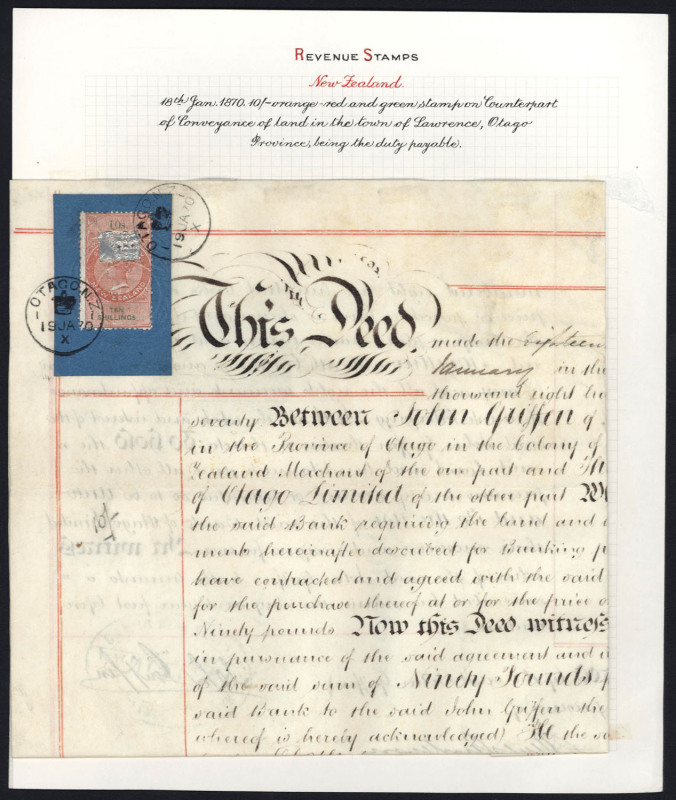 REVENUE STAMPS
New Zealand.
18th Jan. 1870. 10/- orange-red and green stamp on Counterpart
of Conveyance of land in the town of Lawrence, Otago
Province, being the duty payable.
OTAGO N.Z
19 JA 70
X
10s.
NEW ZEALAND
TEN
SHILLINGS
OTAGO N.Z
19 JA 70
X
This Deed, made the Eighteen
January in the
thousand eight hu
seventy Between John Griffen of
in the Province of Otago in the Colony of
Zealand Merchant of the one part and
of Otago Limited of the other part
the said Bank requiring the land and
ments hereinafter described for Banking p
have contracted and agreed with the said
for the purchase thereof at or for the price o
Ninety pounds Now this Deed witness
in pursuance of the said agreement and
of the said sum of Ninety Pounds
said Bank to the said John Griffen the
whereof is hereby acknowledged) All the sa